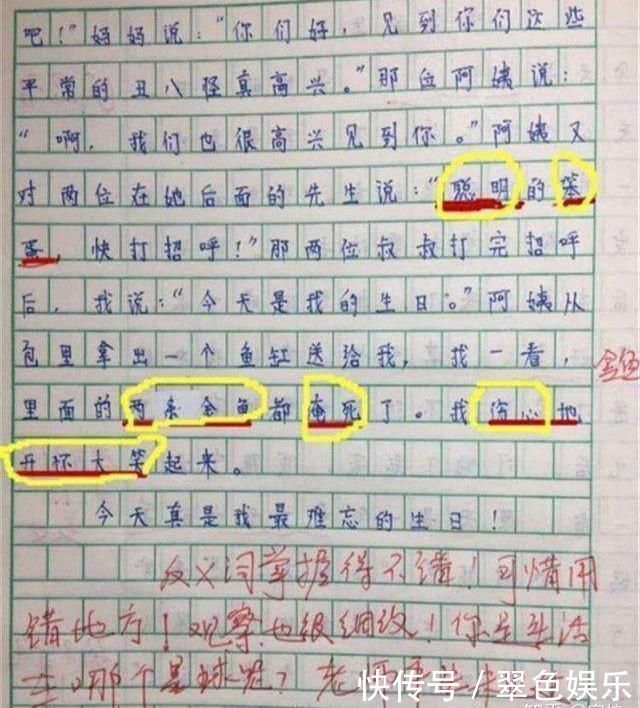 吧！”妈妈说：“你们好，见到你们这些
平常的丑八怪真高兴。”那位阿姨说：
“啊，我们也很高兴见到你。”阿姨又
对两位在她后面的先生说：“聪明的笨
蛋，快打招呼！”那两位叔叔打完招呼
后，我说：“今天是我的生日。”阿姨从
包里拿出一个鱼缸送给我，我一看，
金鱼
里面的两条金鱼都淹死了。我伤心地
开怀大笑起来。
今天真是我最难忘的生日！
反义词掌握得不错！可惜用
错地方！观察也很细致！你是生活
在哪个星球呢？老师
快传号／翠色娱乐